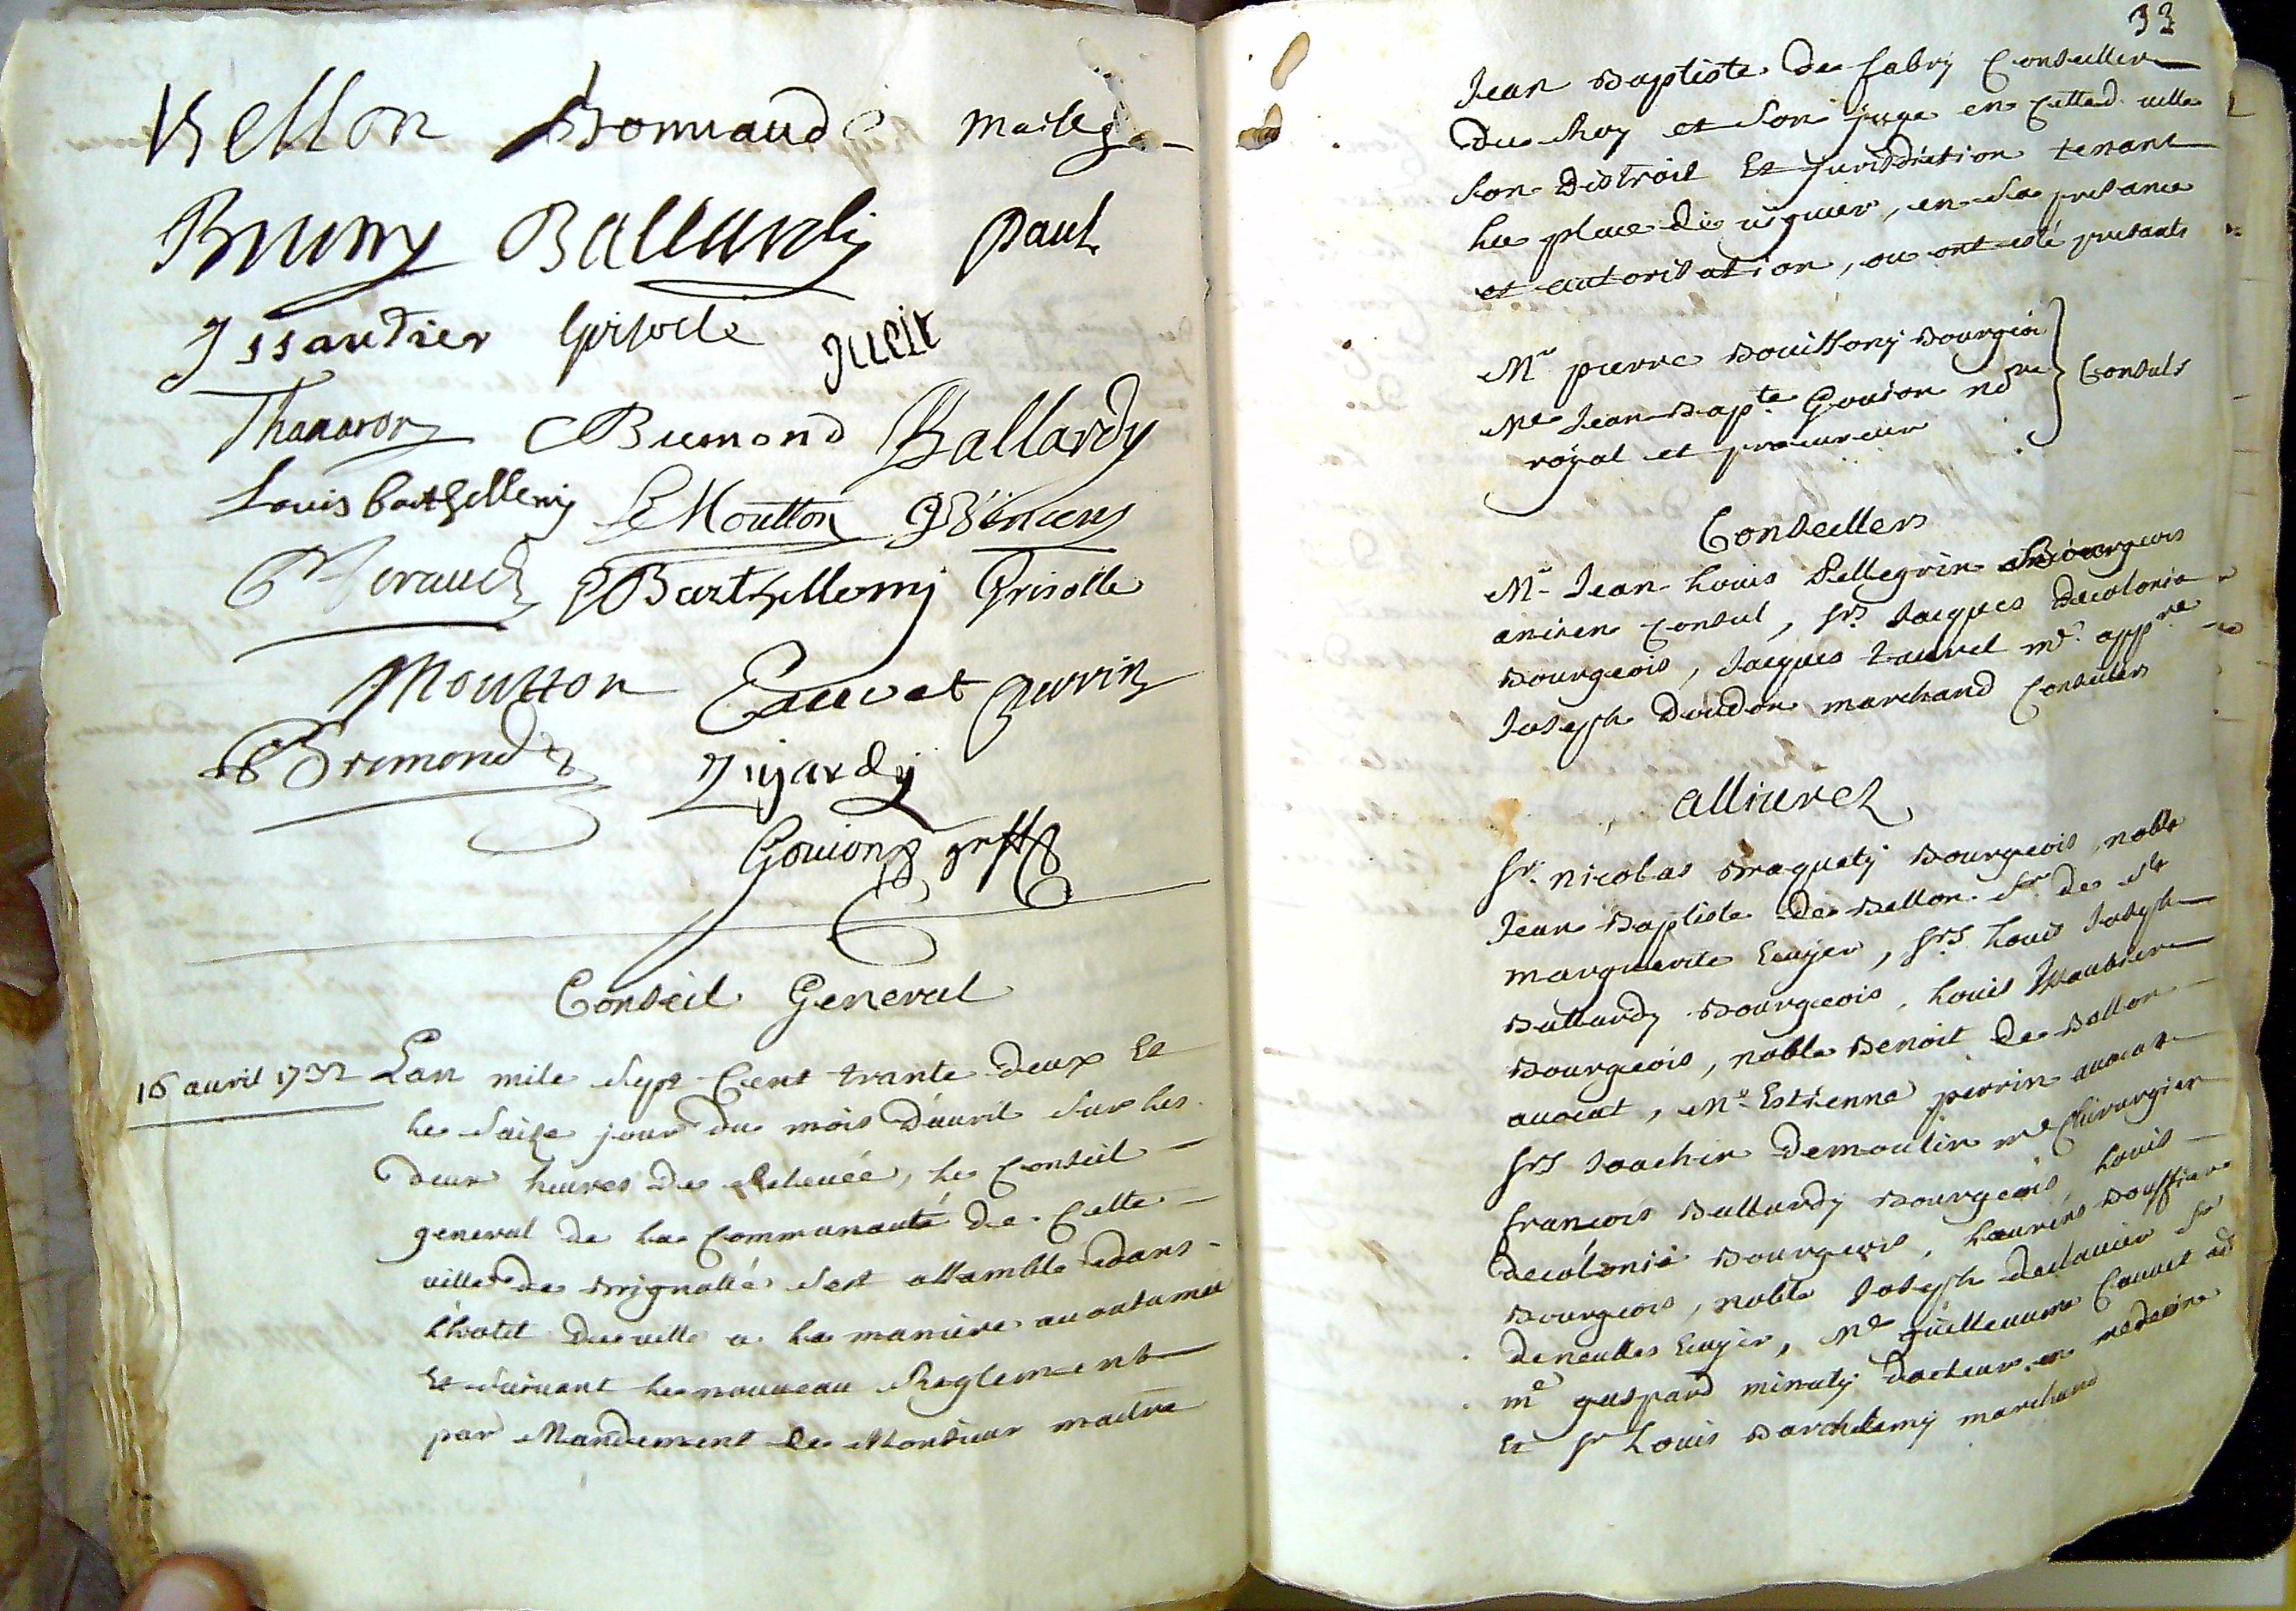 Bellon Bonnaud Maille
Bruny Ballardy Paul
Issaudier Grisolle
Thanaron Bremond Ballardy
Louis barthellemy Le Moutton Vincens
Barthellemy Grisolle
Moutton Cauvet Perrin
Bremond Jujardy
Gouion greff
Conseil General
16 avril 1732 Lan mile sept cent trante deux Et
le saise jour du mois d'avril sur les
deux heures de relevée, le Conseil
general de la Communauté de cette
ville de Brignolle s'est assamblé dans
lhotel de ville a la maniere acoutumée
Et suivant le nouveau Reglement
par Mandement de Monsieur maitre
33
Jean Baptiste de fabry Conseiller
du Roy et son juge en cette d. ville
son distroit Et jurisdiction tenant
la place de viguier, en sa presance
et autorisation, ou ont esté presants
Mr pierre Bouissony Bourgeois
Me Jean Bapte Gouion nore
royal et procureur
Consuls
Conseillers
Mr Jean Louis Pellegrin Bourgeois
ansien Consul, srs Jacques decolonia
Bourgeois, Jacques Laurel md appre
Joseph doudon marchand Conseillers
alliurez
Sr nicolas Braquety Bourgeois, noble
Jean Baptiste de Bellon sr de ste
marguerite Ecuyer, srs Louis Joseph
Ballardy Bourgeois, Louis
Bourgeois, noble Benoit de Bellon
avocat, Me Estienne perrin avocat
srs Joachin demoulin me Chirurgien
francois Ballardy Bourgeois, Louis
decolonia Bourgeois, Laurens Bouffier
Bourgeois, noble Joseph declavier sr
deneulles Ecuyer, Me guilleaume Cauvet ad
me gaspard minuty docteur en medecine
Et sr Louis Barthelemy marchand